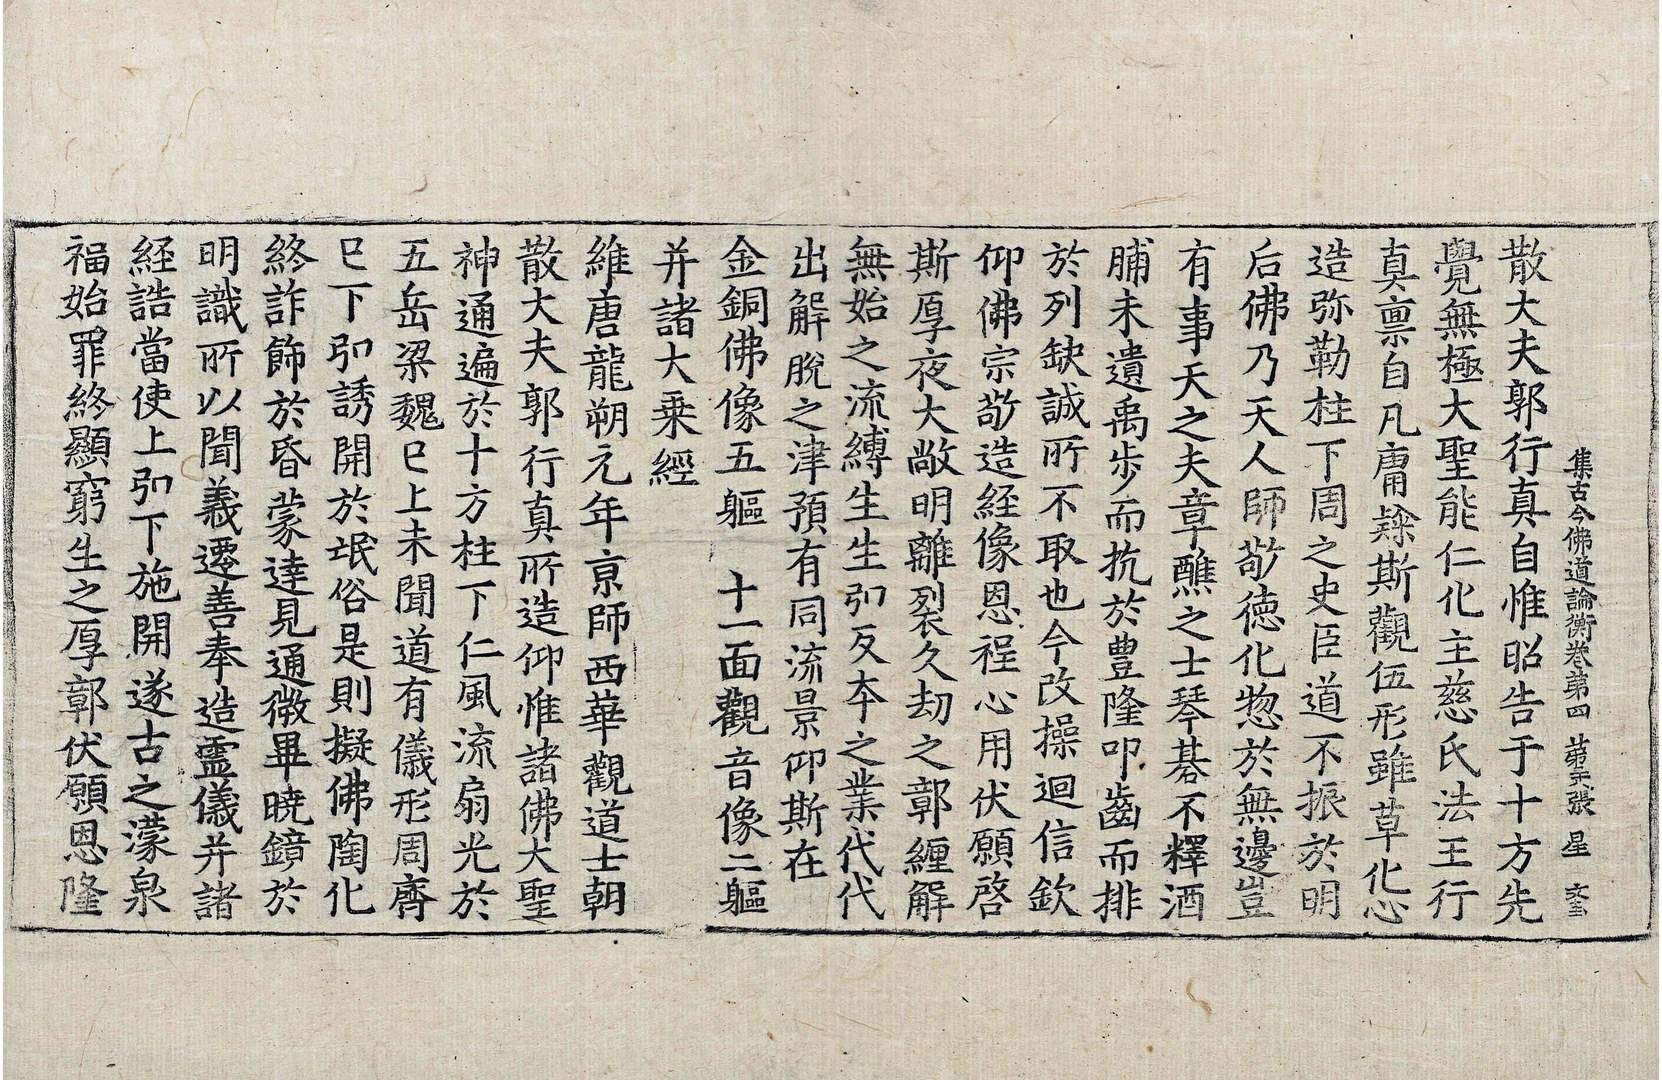 集古今佛道論衡卷第四 第三張 星
散大夫郭行真自惟昭告于十方先
覺無極大聖能仁化主慈氏法王行
真禀自凡庸𣩠斯觀伍形雖草化心
造弥勒柱下周之史臣道不振於明
后佛乃天人師敬德化惣於無邊豈
有事天之夫章醮之士琴碁不釋酒
脯未遺禹步而抗於豊隆叩齒而排
於列缺誠所不取也今改操迴信欽
仰佛宗敬造経像恩程心用伏願啓
斯厚夜大敞明離裂久劫之郭纏解
無始之流縛生生引反本之業代代
出解脫之津預有同流景仰斯在
金銅佛像五軀 十一面觀音像二軀
并諸大乗經
維唐龍朔元年京師西華觀道士朝
散大夫郭行真所造仰惟諸佛大聖
神通遍於十方柱下仁風流扇光於
五岳梁魏已上未聞道有儀形周齊
已下引誘開於氓俗是則擬佛陶化
終詐飾於昏蒙達見通微畢曉鏡於
明識所以聞義遷善奉造靈儀并諸
経誥當使上引下施開遂古之濛泉
福始罪終顯窮生之厚郭伏願恩隆